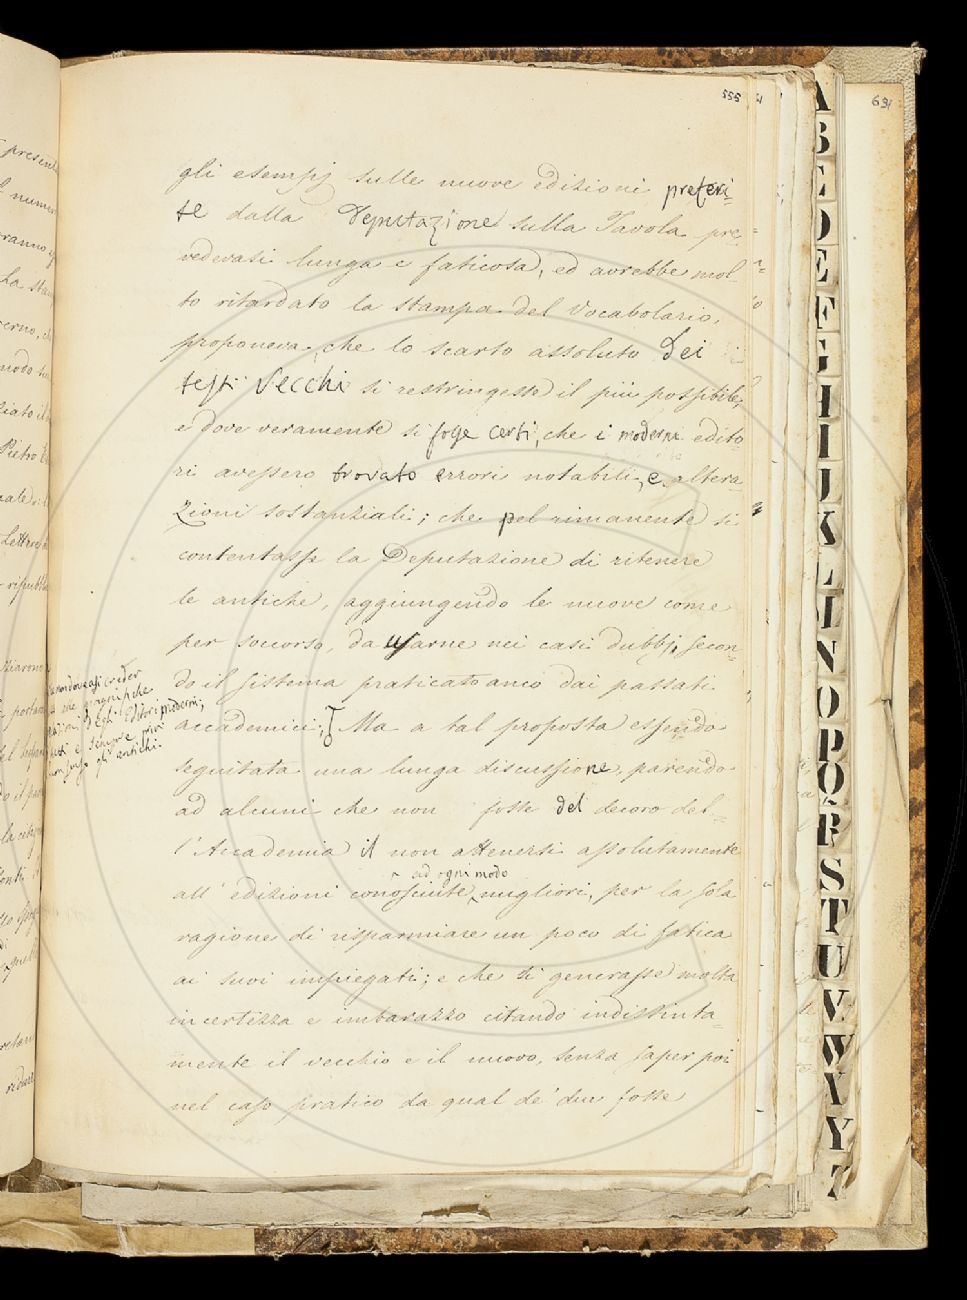 555
691
gli esempij sulle nuove edizioni preferi=
te dalla Deputazione sulla Tavola pre=
vedevasi lunga e faticosa, ed avrebbe mol=
to ritardato la stampa del Vocabolario,
proponeva, che lo scarto assoluto dei
testi Vecchi si restringesse il più possibile,
e dove veramente si fosse certi, che i moderni edito=
ri avessero trovato errori notabili, e altera=
zioni sostanziali; che pel rimanente si
contentasse la Deputazione di ritenere
le antiche, aggiungendo le nuove come
per soccorso, da usarne nei casi dubbj, secon=
do il sistema praticato anco dai passati
accademici; Ma a tal proposta essendo
seguitata una lunga discussione, parendo
ad alcuni che non fosse del decoro del=
l'Accademia il non attenersi assolutamente
ad ogni modo
all'edizioni conosciute migliori, per la sola
ragione di risparmiare un poco di fatica
ai suoi impiegati; e che si generasse molta
incertezza e imbarazzo citando indistinta=
mente il vecchio e il nuovo, senza saper poi
nel caso pratico da qual de' due fosse
non doveasi creder
che magnifiche
degli Editori moderni,
e sempre
gli antichi.
A
B
C
D
E
F
G
H
I
J
K
L
M
N
O
P
Q
R
S
T
U
V
W
X
Y
Z